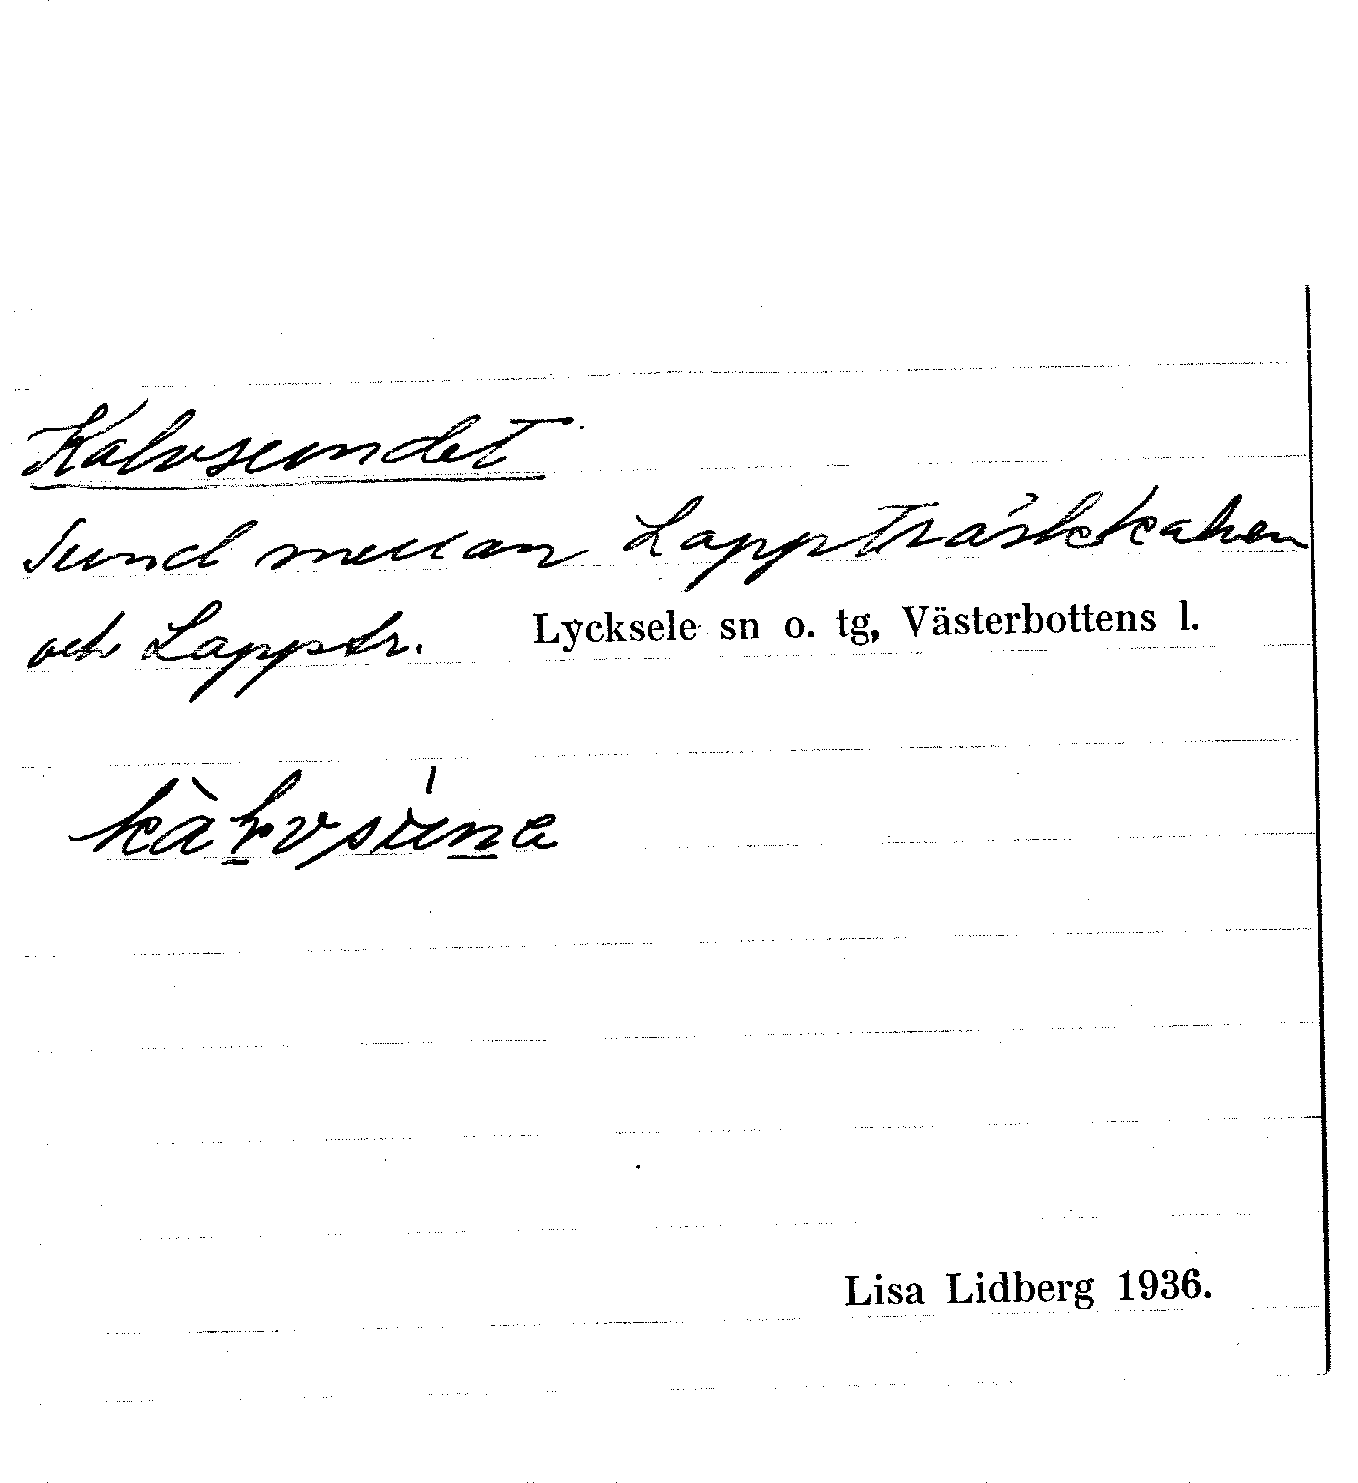 Kalvsundet
Sund mellan Lappträskkaken
och Lapptr. Lycksele sn o. tg, Västerbottens l.
Lisa Lidberg 1936.